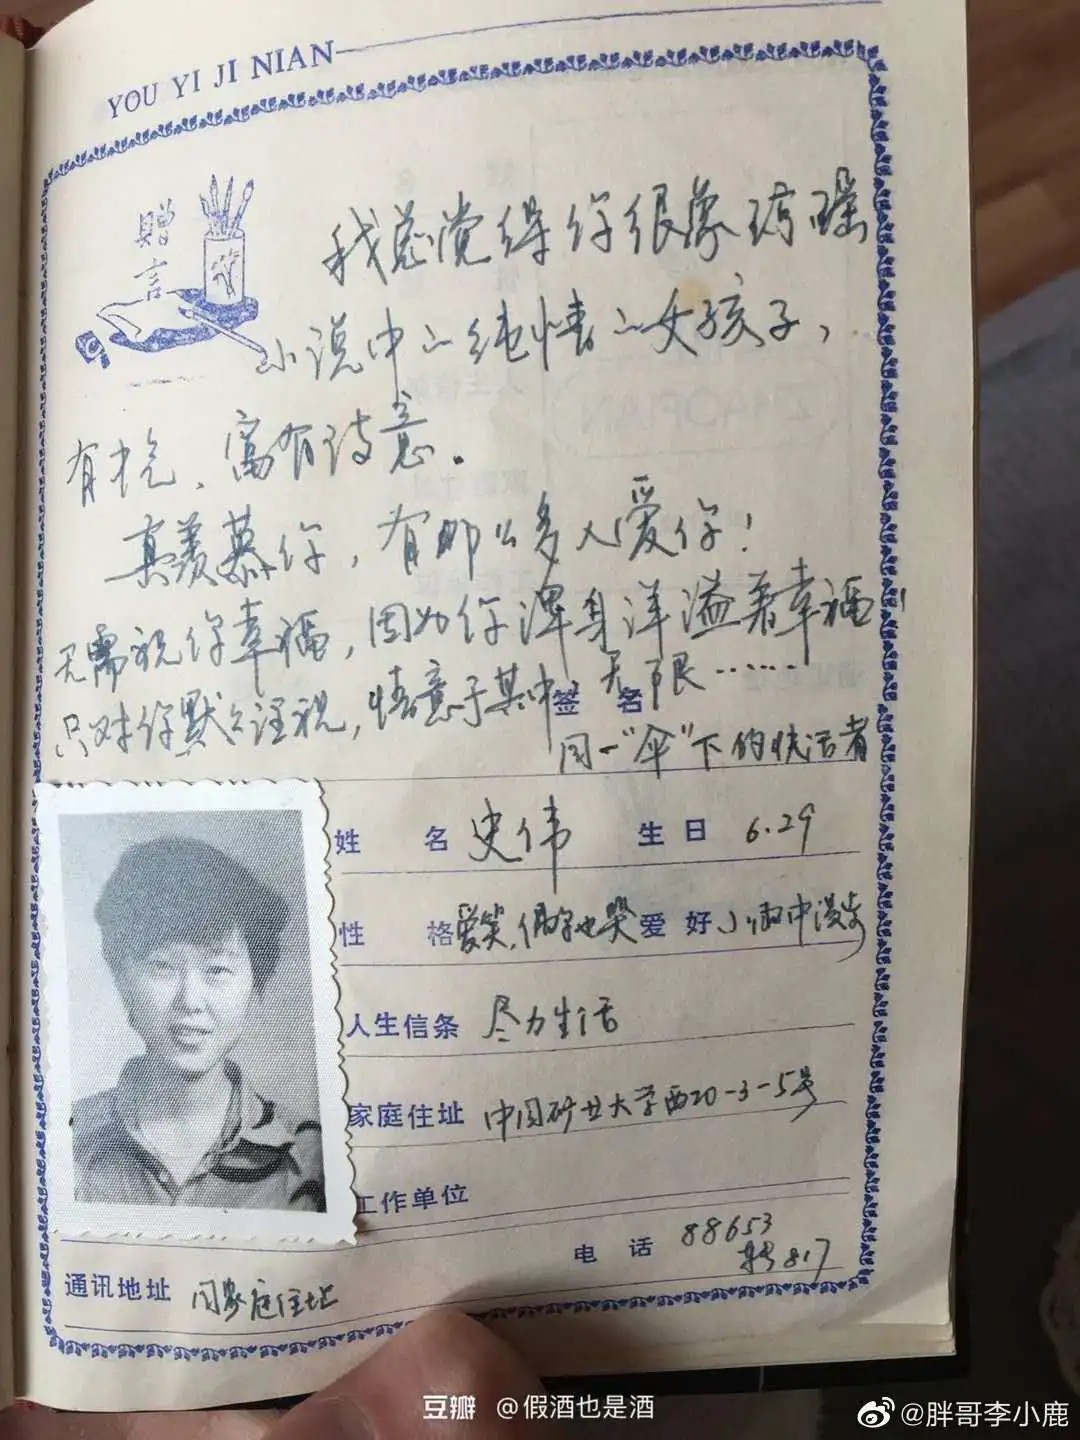 YOU YI JI NIAN
赠言
我总觉得你很像琼瑶
小说中的纯情的女孩子，
有才气、富有诗意。
真羡慕你，有那么多人爱你！
无需祝你幸福，因为你浑身洋溢着幸福！
只对你默默注视，情意于其中，无限……
签名
同一“伞”下的快活者
姓名 史伟 生日 6.29
性格 爱笑，偶尔也哭 爱好 小雨中漫步
人生信条 尽力生活
家庭住址 中国矿业大学西20-3-5号
工作单位
电话 88653
转817
通讯地址 同家庭住址
豆瓣 @假酒也是酒
@胖哥李小鹿